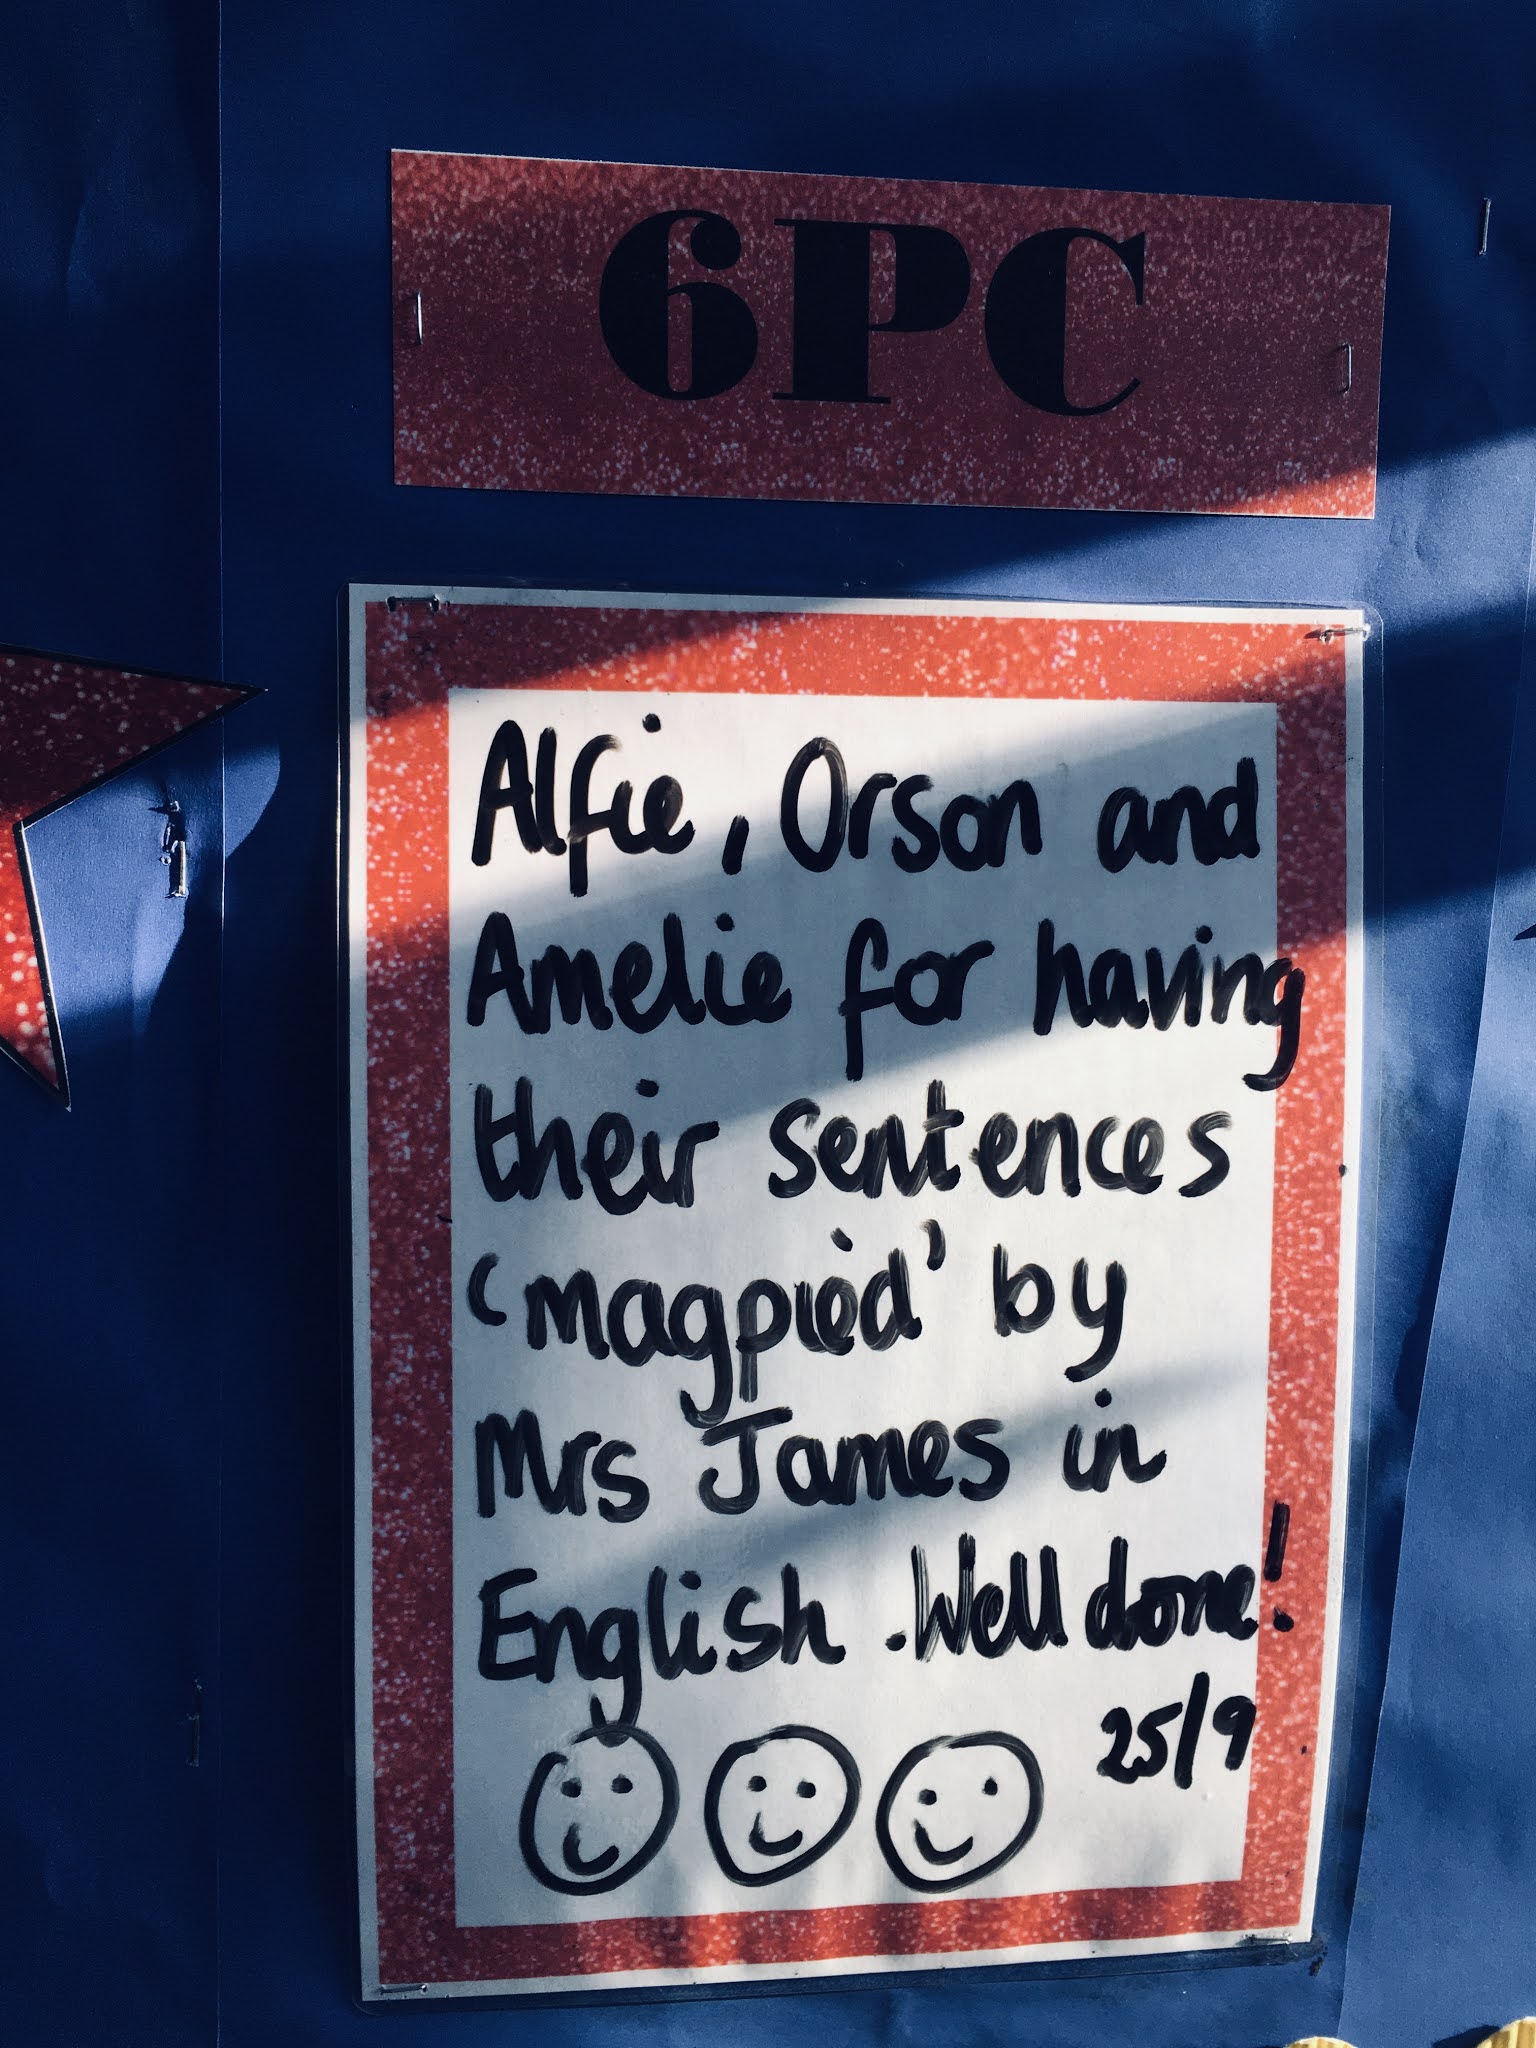 6PC
Alfie, Orson and
Amelie for having
their sentences
'magpied' by
Mrs James in
English. Well done!
25/9